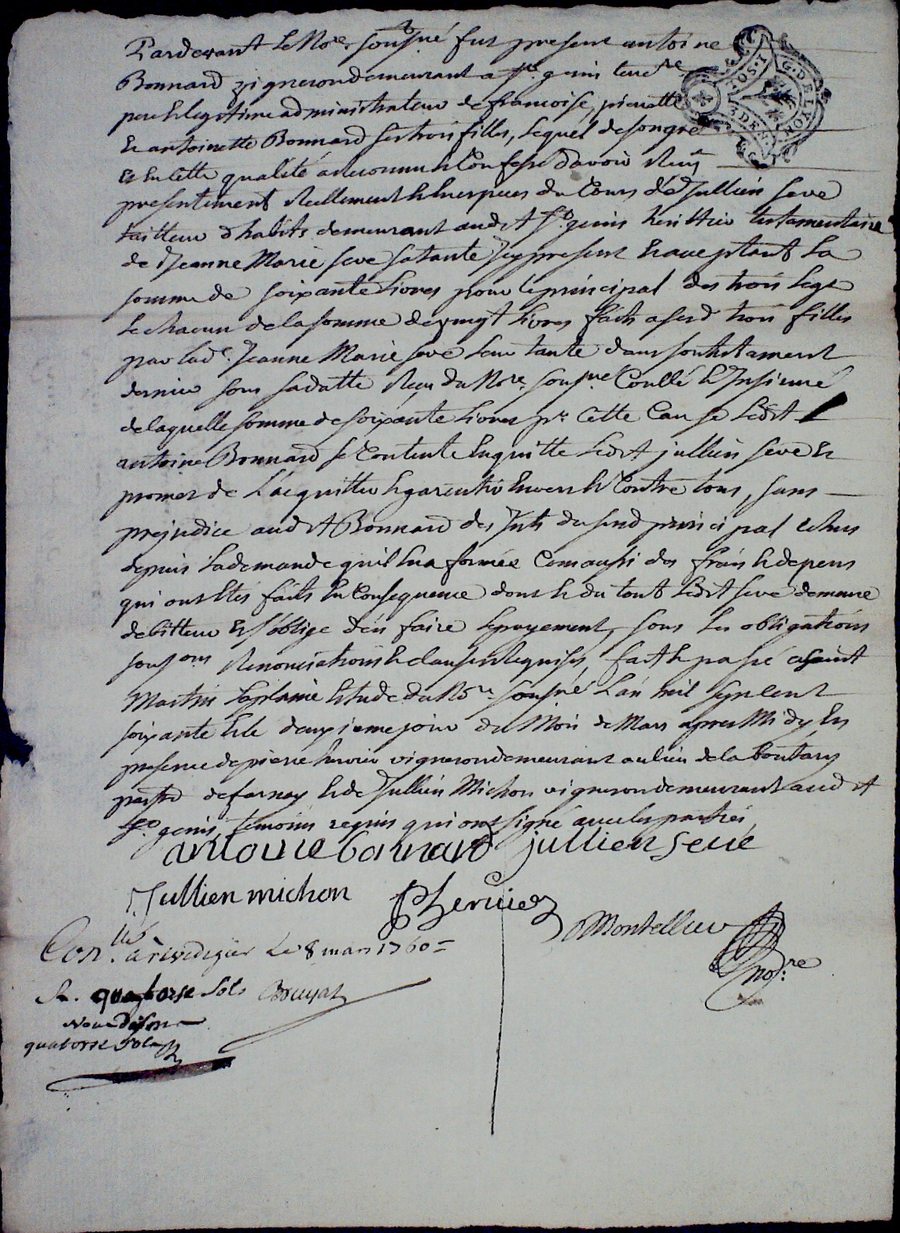 Pardevant Le No.re sous.né fut present antoine
Bonnard vigneron demeurant a St. genis terre
pere & legitime administrateur de francoise, pierrette
& antoinette Bonnard ses trois filles, Lequel de son gré
Et en cette qualité a reconnu & Confessé d'avoir Recu
presentement Reellement & en especes du Cours de Jullien Seve
tailleur d'habits demeurant aud.t St. genis heritier testamentaire
de Jeanne Marie Seve sa tante Icy present & acceptant La
somme de soixante Livres pour le principal des trois Legs
de chacun de la somme de vingt Livres faits a sesd. trois filles
par lad.e Jeanne Marie Seve Leur tante dans son testament
dernier sous sa datte Recu du No.re sous.né Conllé & Insinué
de laquelle somme de soixante Livres pr. Cette Cause Led.t
antoine Bonnard se Contente en quitte Led.t jullien Seve &
promet de L'acquitter & garentir Envers & Contre tous, sans
prejudice aud.t Bonnard des Jnts. dusend principal Echus
depuis La demande qu'il En a formée Comme aussi des frais & depens
qui ont Etés faits En Consequence dont & du tout Led.t Seve demeure
debitteur Et s'oblige d'en faire Le payement, sous Les obligations
soumons Renonciations & clauses Requises, fait & passé a saint
Martin La plaine Etude du No.re sous.né L'an mil sept cent
soixante & le deuxieme jour du Mois de Mars apres Midy En
presence de pierre hervier vigneron demeurant au lieu de la boutary
parsse de farnay & de Jullien Michon vigneron demeurant aud.t
St. genis, temoins requis qui ont signé avec les parties
antoine bonnard jullien seve
Jullien michon P hervier
Montellier
no.re
Con.llé a rivedegier Le 8 mars 1760
R. quatorse sols
quatorse sols
G. DE LYON